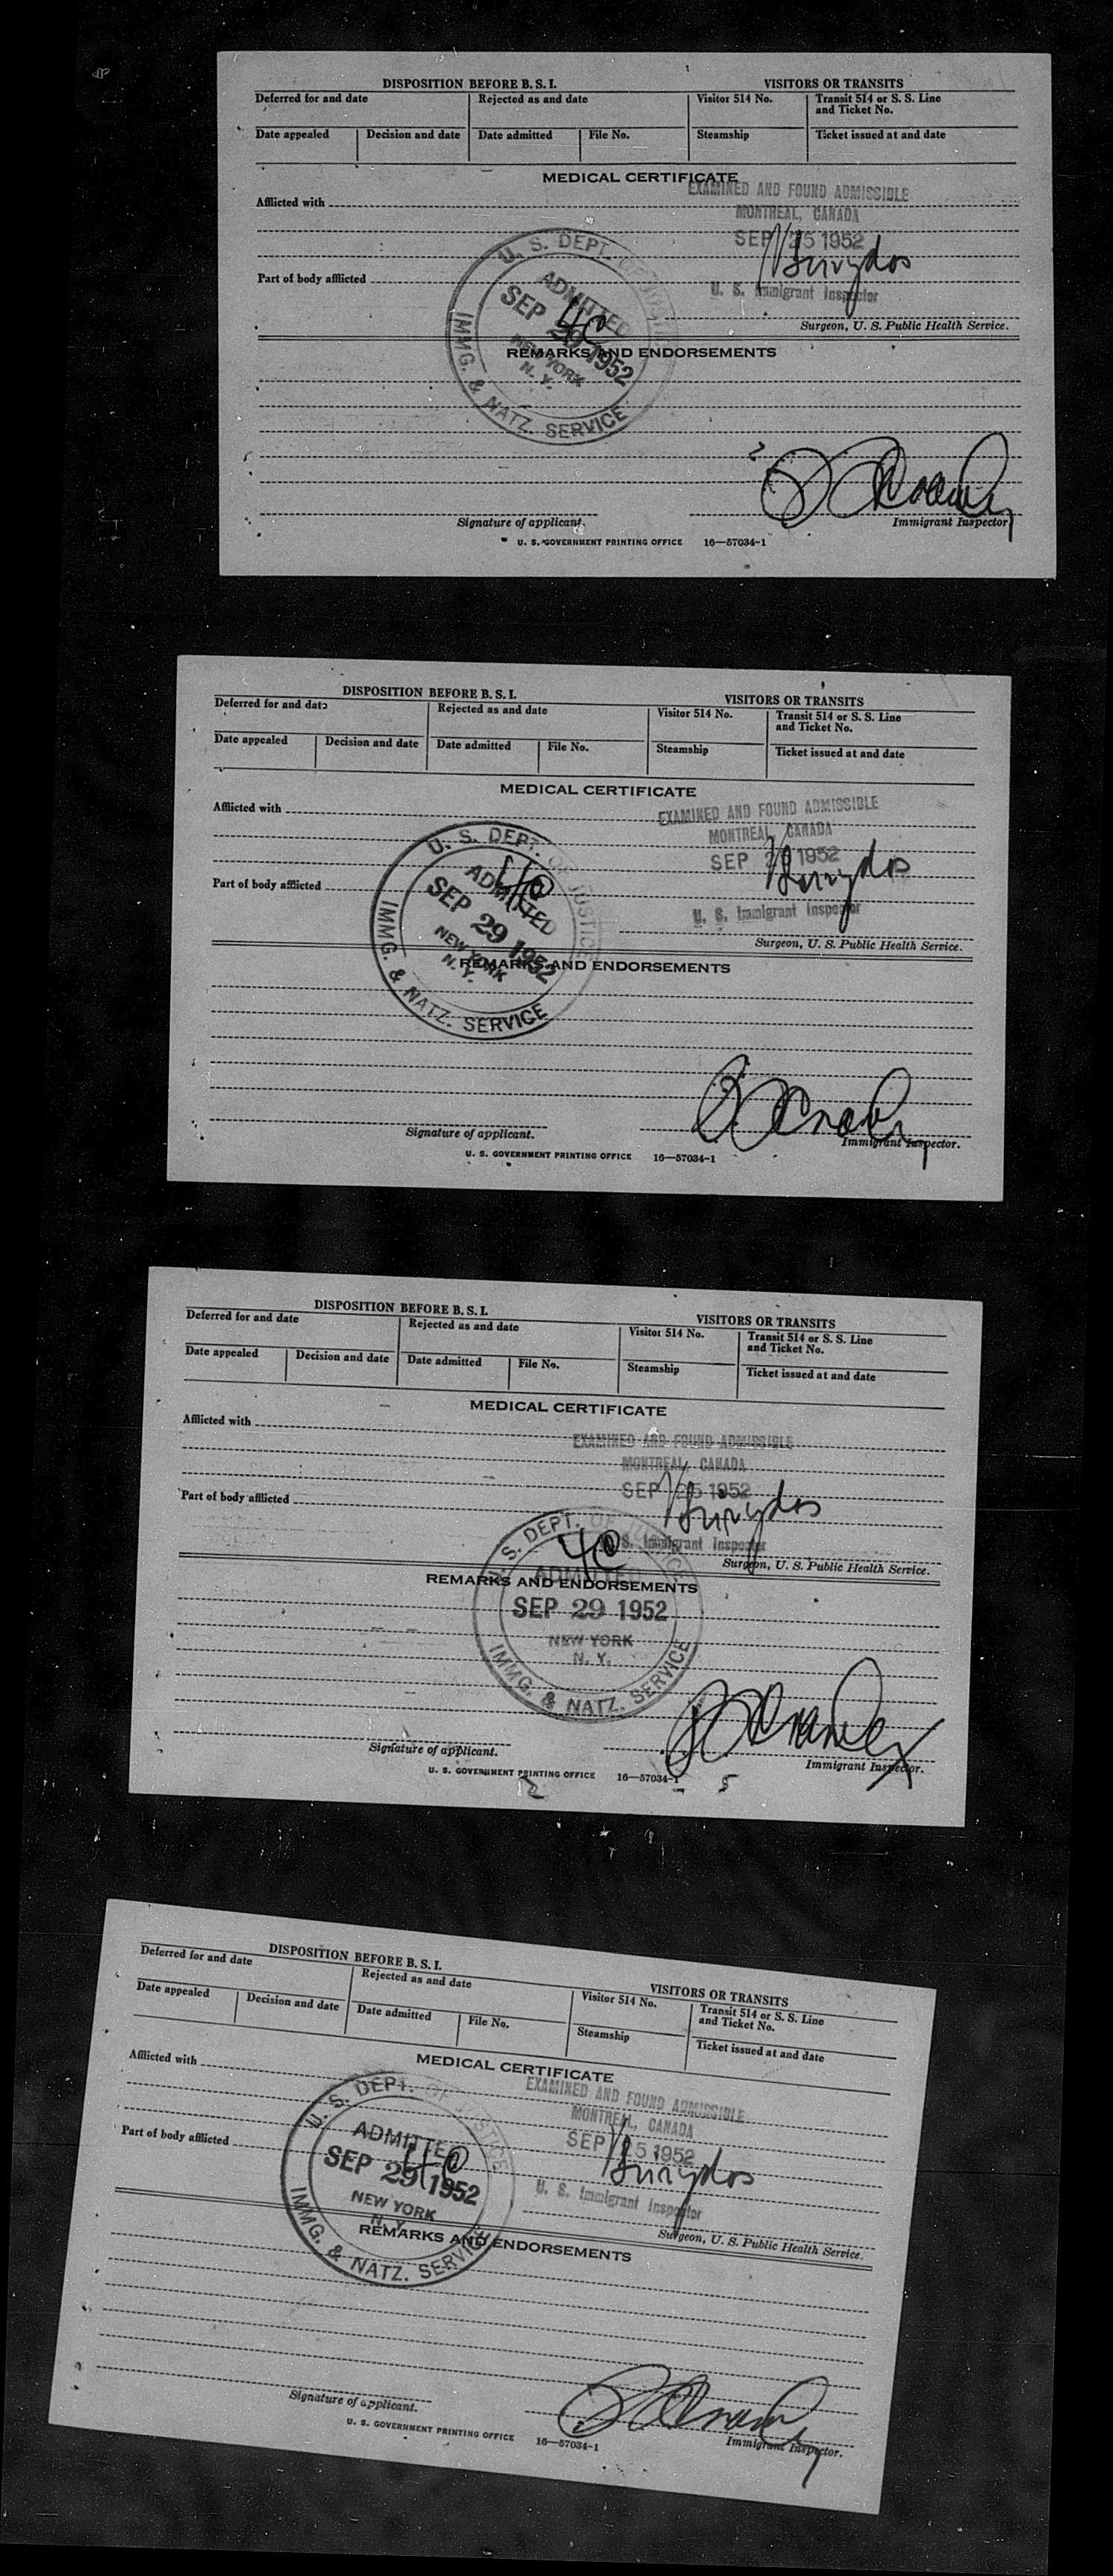 DISPOSITION BEFORE B. S. I. VISITORS OR TRANSITS
Deferred for and date Rejected as and date Visitor 514 No. Transit 514 or S. S. Line
and Ticket No.
Date appealed Decision and date Date admitted File No. Steamship Ticket issued at and date
MEDICAL CERTIFICATE
EXAMINED AND FOUND ADMISSIBLE
Afflicted with
MONTREAL, CANADA
SEP 25 1952
U. S. DEPT. OF JUSTICE
Part of body afflicted
ADMITTED
U. S. Immigrant Inspector
SEP 29 1952
4C
Surgeon, U. S. Public Health Service.
NEW YORK
N. Y.
REMARKS AND ENDORSEMENTS
IMMG. & NATZ. SERVICE
Signature of applicant. Immigrant Inspector
U. S. GOVERNMENT PRINTING OFFICE 16—57034-1
DISPOSITION BEFORE B. S. I. VISITORS OR TRANSITS
Deferred for and date Rejected as and date Visitor 514 No. Transit 514 or S. S. Line
and Ticket No.
Date appealed Decision and date Date admitted File No. Steamship Ticket issued at and date
MEDICAL CERTIFICATE
EXAMINED AND FOUND ADMISSIBLE
Afflicted with
MONTREAL, CANADA
SEP 1952
U. S. DEPT. OF JUSTICE
Part of body afflicted
4C
ADMITTED
U. S. Immigrant Inspector
SEP 29 1952
Surgeon, U. S. Public Health Service.
NEW YORK
N. Y.
REMARKS AND ENDORSEMENTS
IMMG. & NATZ. SERVICE
Signature of applicant. Immigrant Inspector.
U. S. GOVERNMENT PRINTING OFFICE 16—57034-1
DISPOSITION BEFORE B. S. I. VISITORS OR TRANSITS
Deferred for and date Rejected as and date Visitor 514 No. Transit 514 or S. S. Line
and Ticket No.
Date appealed Decision and date Date admitted File No. Steamship Ticket issued at and date
MEDICAL CERTIFICATE
Afflicted with
EXAMINED AND FOUND ADMISSIBLE
MONTREAL, CANADA
SEP 25 1952
Part of body afflicted
U. S. DEPT. OF JUSTICE
U. S. Immigrant Inspector
4C
Surgeon, U. S. Public Health Service.
ADMITTED
REMARKS AND ENDORSEMENTS
SEP 29 1952
NEW YORK
N. Y.
IMMG. & NATZ. SERVICE
Signature of applicant. Immigrant Inspector.
U. S. GOVERNMENT PRINTING OFFICE 16—57034-1
DISPOSITION BEFORE B. S. I. VISITORS OR TRANSITS
Deferred for and date Rejected as and date Visitor 514 No. Transit 514 or S. S. Line
and Ticket No.
Date appealed Decision and date Date admitted File No. Steamship Ticket issued at and date
MEDICAL CERTIFICATE
Afflicted with
EXAMINED AND FOUND ADMISSIBLE
MONTREAL, CANADA
SEP 25 1952
U. S. DEPT. OF JUSTICE
Part of body afflicted
ADMITTED
4C
SEP 29 1952
U. S. Immigrant Inspector
NEW YORK
N. Y.
Surgeon, U. S. Public Health Service.
REMARKS AND ENDORSEMENTS
IMMG. & NATZ. SERVICE
Signature of applicant. Immigrant Inspector.
U. S. GOVERNMENT PRINTING OFFICE 16—57034-1